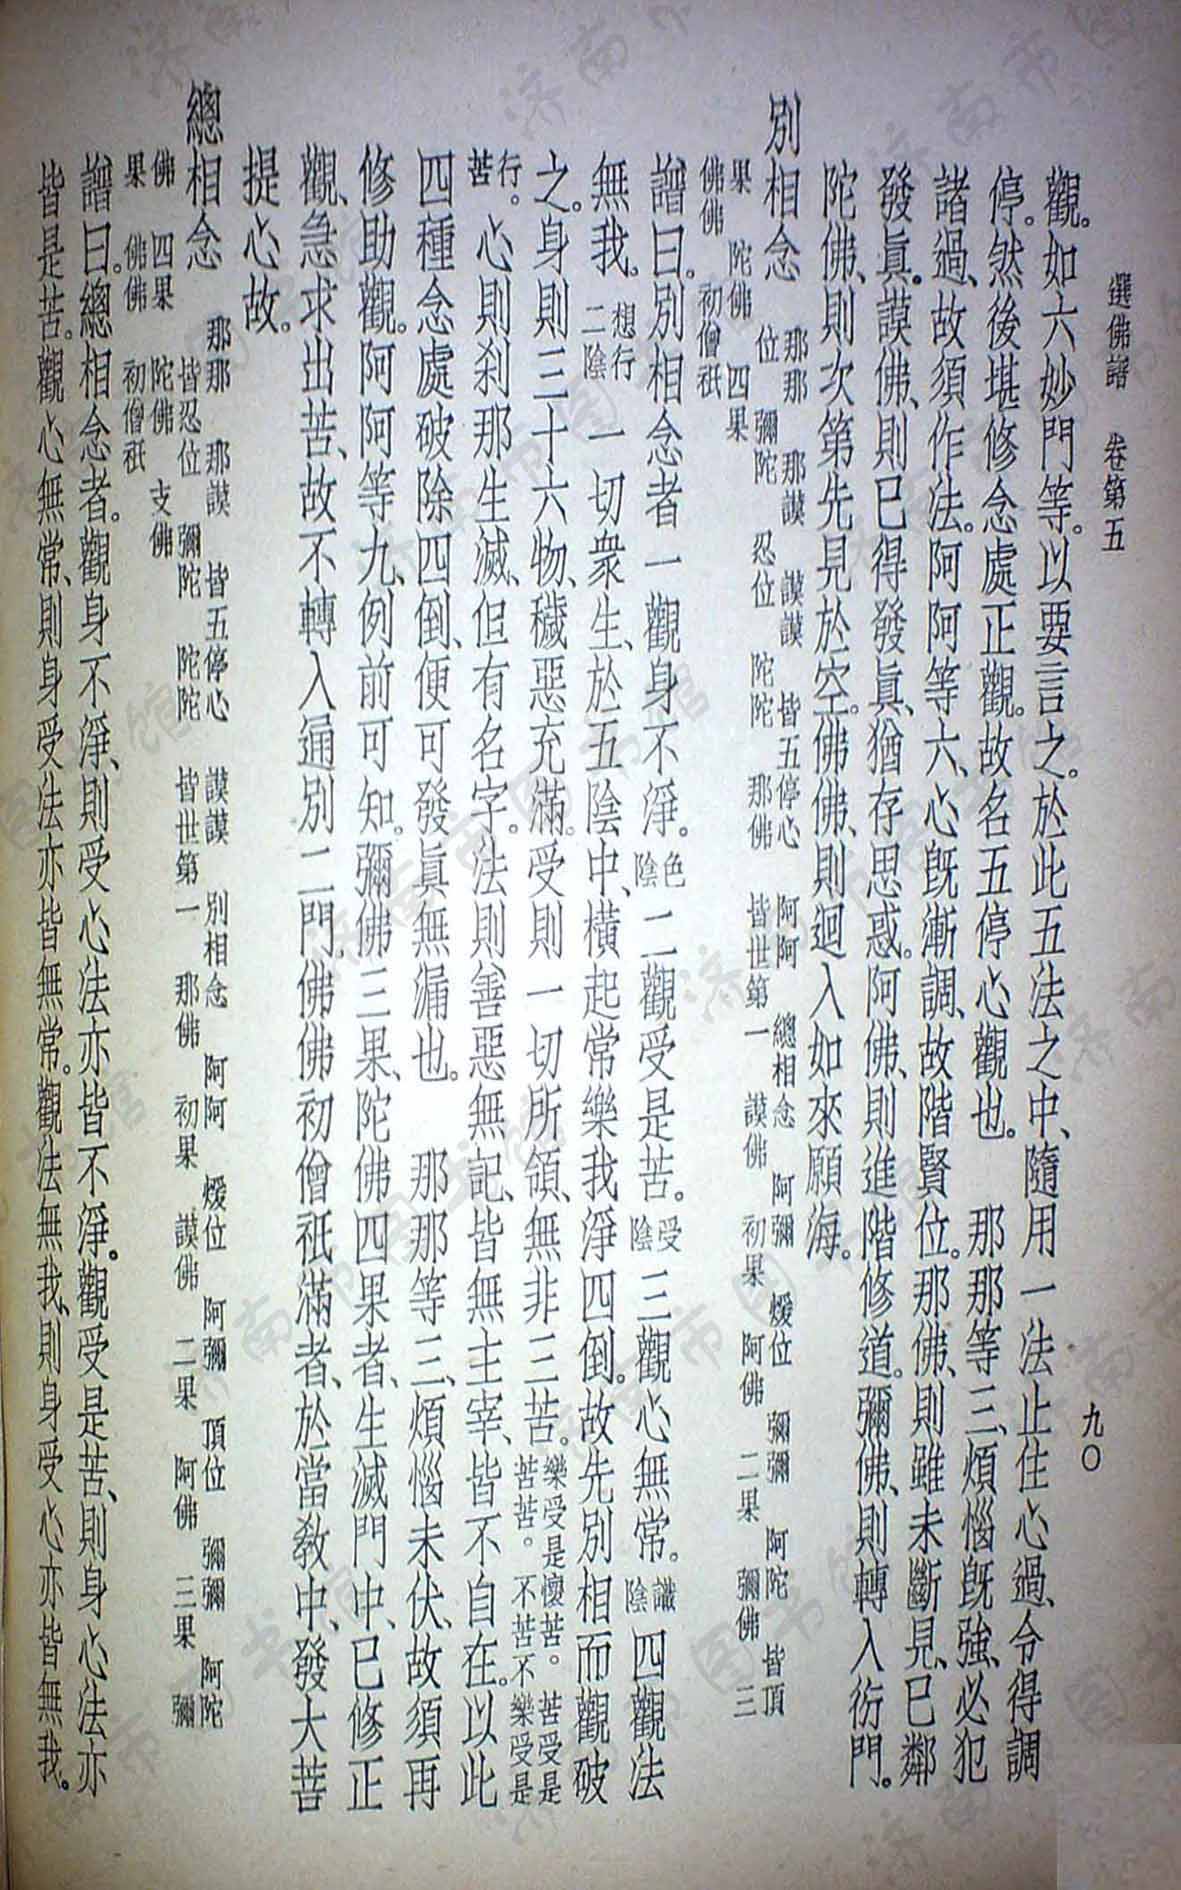 選佛譜 卷第五 九〇
觀。如六妙門等。以要言之。於此五法之中、隨用一法止住心過、令得調
停。然後堪修念處正觀。故名五停心觀也。 那那等三、煩惱既強、必犯
諸過、故須作法。阿阿等六、心既漸調、故階賢位。那佛、則雖未斷見、已鄰
發眞。謨佛、則已得發眞、猶存思惑。阿佛、則進階修道。彌佛、則轉入衍門。
陀佛、則次第先見於空。佛佛、則迴入如來願海。
別相念 那那 那謨 謨謨 皆五停心 阿阿 總相念 阿彌 煖位 彌彌 阿陀 皆頂
位 彌陀 忍位 陀陀 那佛 皆世第一 謨佛 初果 阿佛 二果 彌佛 三
果 陀佛 四果
佛佛 初僧祇
譜曰。別相念者一觀身不淨。色陰 二觀受是苦。受陰 三觀心無常。識陰 四觀法
無我。想行二陰 一切衆生、於五陰中、橫起常樂我淨四倒。故先別相而觀破
之。身則三十六物、穢惡充滿。受則一切所領、無非三苦。樂受是懷苦。苦受是苦苦。不苦不樂受是
行苦。心則刹那生滅、但有名字。法則善惡無記、皆無主宰、皆不自在。以此
四種念處破除四倒、便可發眞無漏也。 那那等三、煩惱未伏、故須再
修助觀。阿阿等九、例前可知。彌佛三果、陀佛四果者、生滅門中、已修正
觀、急求出苦、故不轉入通別二門。佛佛初僧祇滿者、於當教中、發大菩
提心故。
總相念 那那 那謨 皆五停心 謨謨 別相念 阿阿 煖位 阿彌 頂位 彌彌 阿陀
皆忍位 彌陀 陀陀 皆世第一 那佛 初果 謨佛 二果 阿佛 三果 彌
佛 四果 陀佛 支佛
果 佛佛 初僧祇
譜曰。總相念者。觀身不淨、則受心法亦皆不淨。觀受是苦、則身心法亦
皆是苦。觀心無常、則身受法亦皆無常。觀法無我、則身受心亦皆無我。